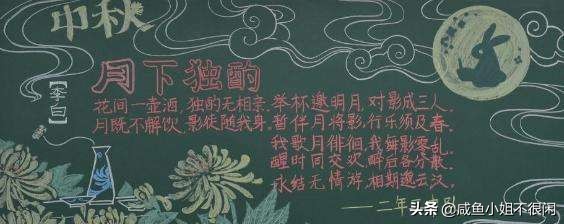 中秋
月下独酌
【李白】
花间一壶酒,独酌无相亲.举杯邀明月,对影成三人.
月既不解饮,影徒随我身.暂伴月将影,行乐须及春.
我歌月徘徊,我舞影零乱.
醒时同交欢,醉后各分散.
永结无情游,相期邈云汉.
一二年
头条 @咸鱼小姐不很闲